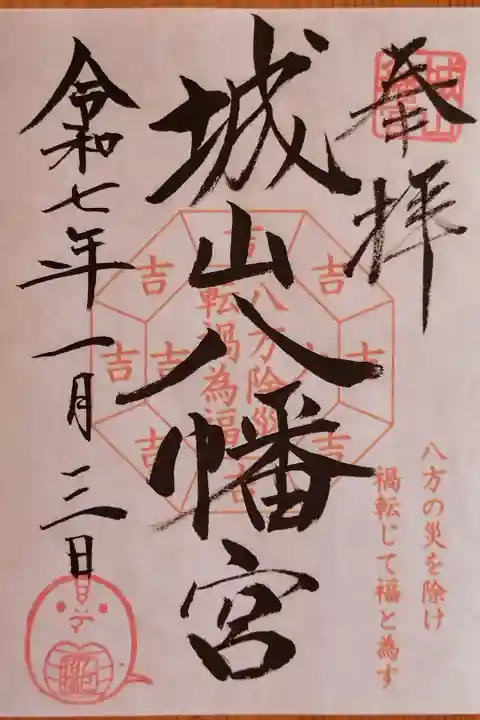 奉拝
城山八幡宮
令和七年一月三日
八方除災
転禍為福
吉
吉
吉
吉
吉
吉
吉
吉
八方の災を除け
禍転じて福と為す